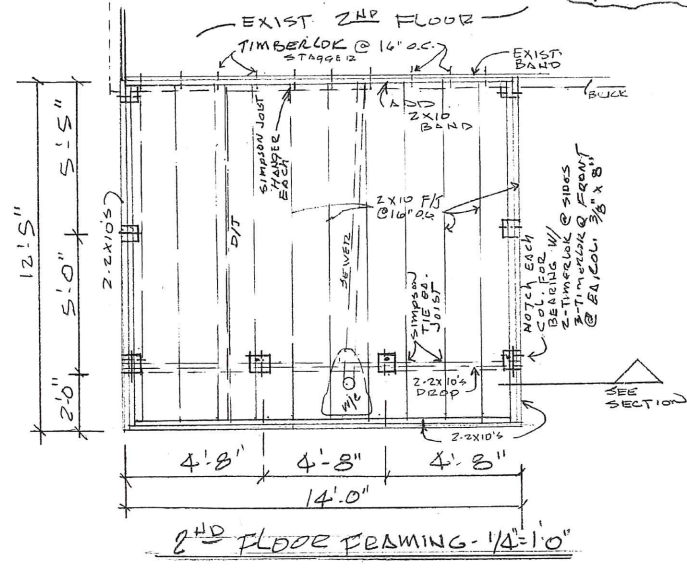 EXIST. 2ND FLOOR
TIMBERLOK @ 16" O.C.
STAGGER
EXIST.
BAND
BLICK
ADD
2X10
BAND
SIMPSON JOIST
HANGER
EACH
5'-5"
5'-0"
2'-0"
12'-5"
2-2X10'S
D/J
2X10 F/J
@16"OC
SEWER
SIMPSON
TIE EA.
JOIST
NOTCH EACH
COL. FOR
BEARING W/
2-TIMERLOK @ SIDES
3-TIMERLOK @ FRONT
@ EA, COL. 3/8" X 8"
W/C
2-2X10'S
DROP
SEE
SECTION
2-2X10'S
4'-8" 4'-8" 4'-8"
14'-0"
2ND FLOOR FRAMING - 1/4"=1'0"